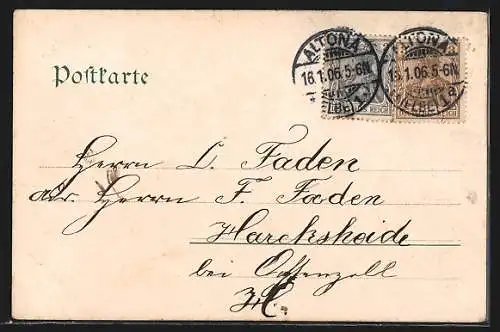 Postkarte
ALTONA
16.1.06.5-6N
(ELBE) 1a
ALTONA
16.1.06.5-6N
(ELBE) 1a
REICH
Herrn L. Faden
adr. Herrn F. Faden
Harksheide
bei Ochsenzoll